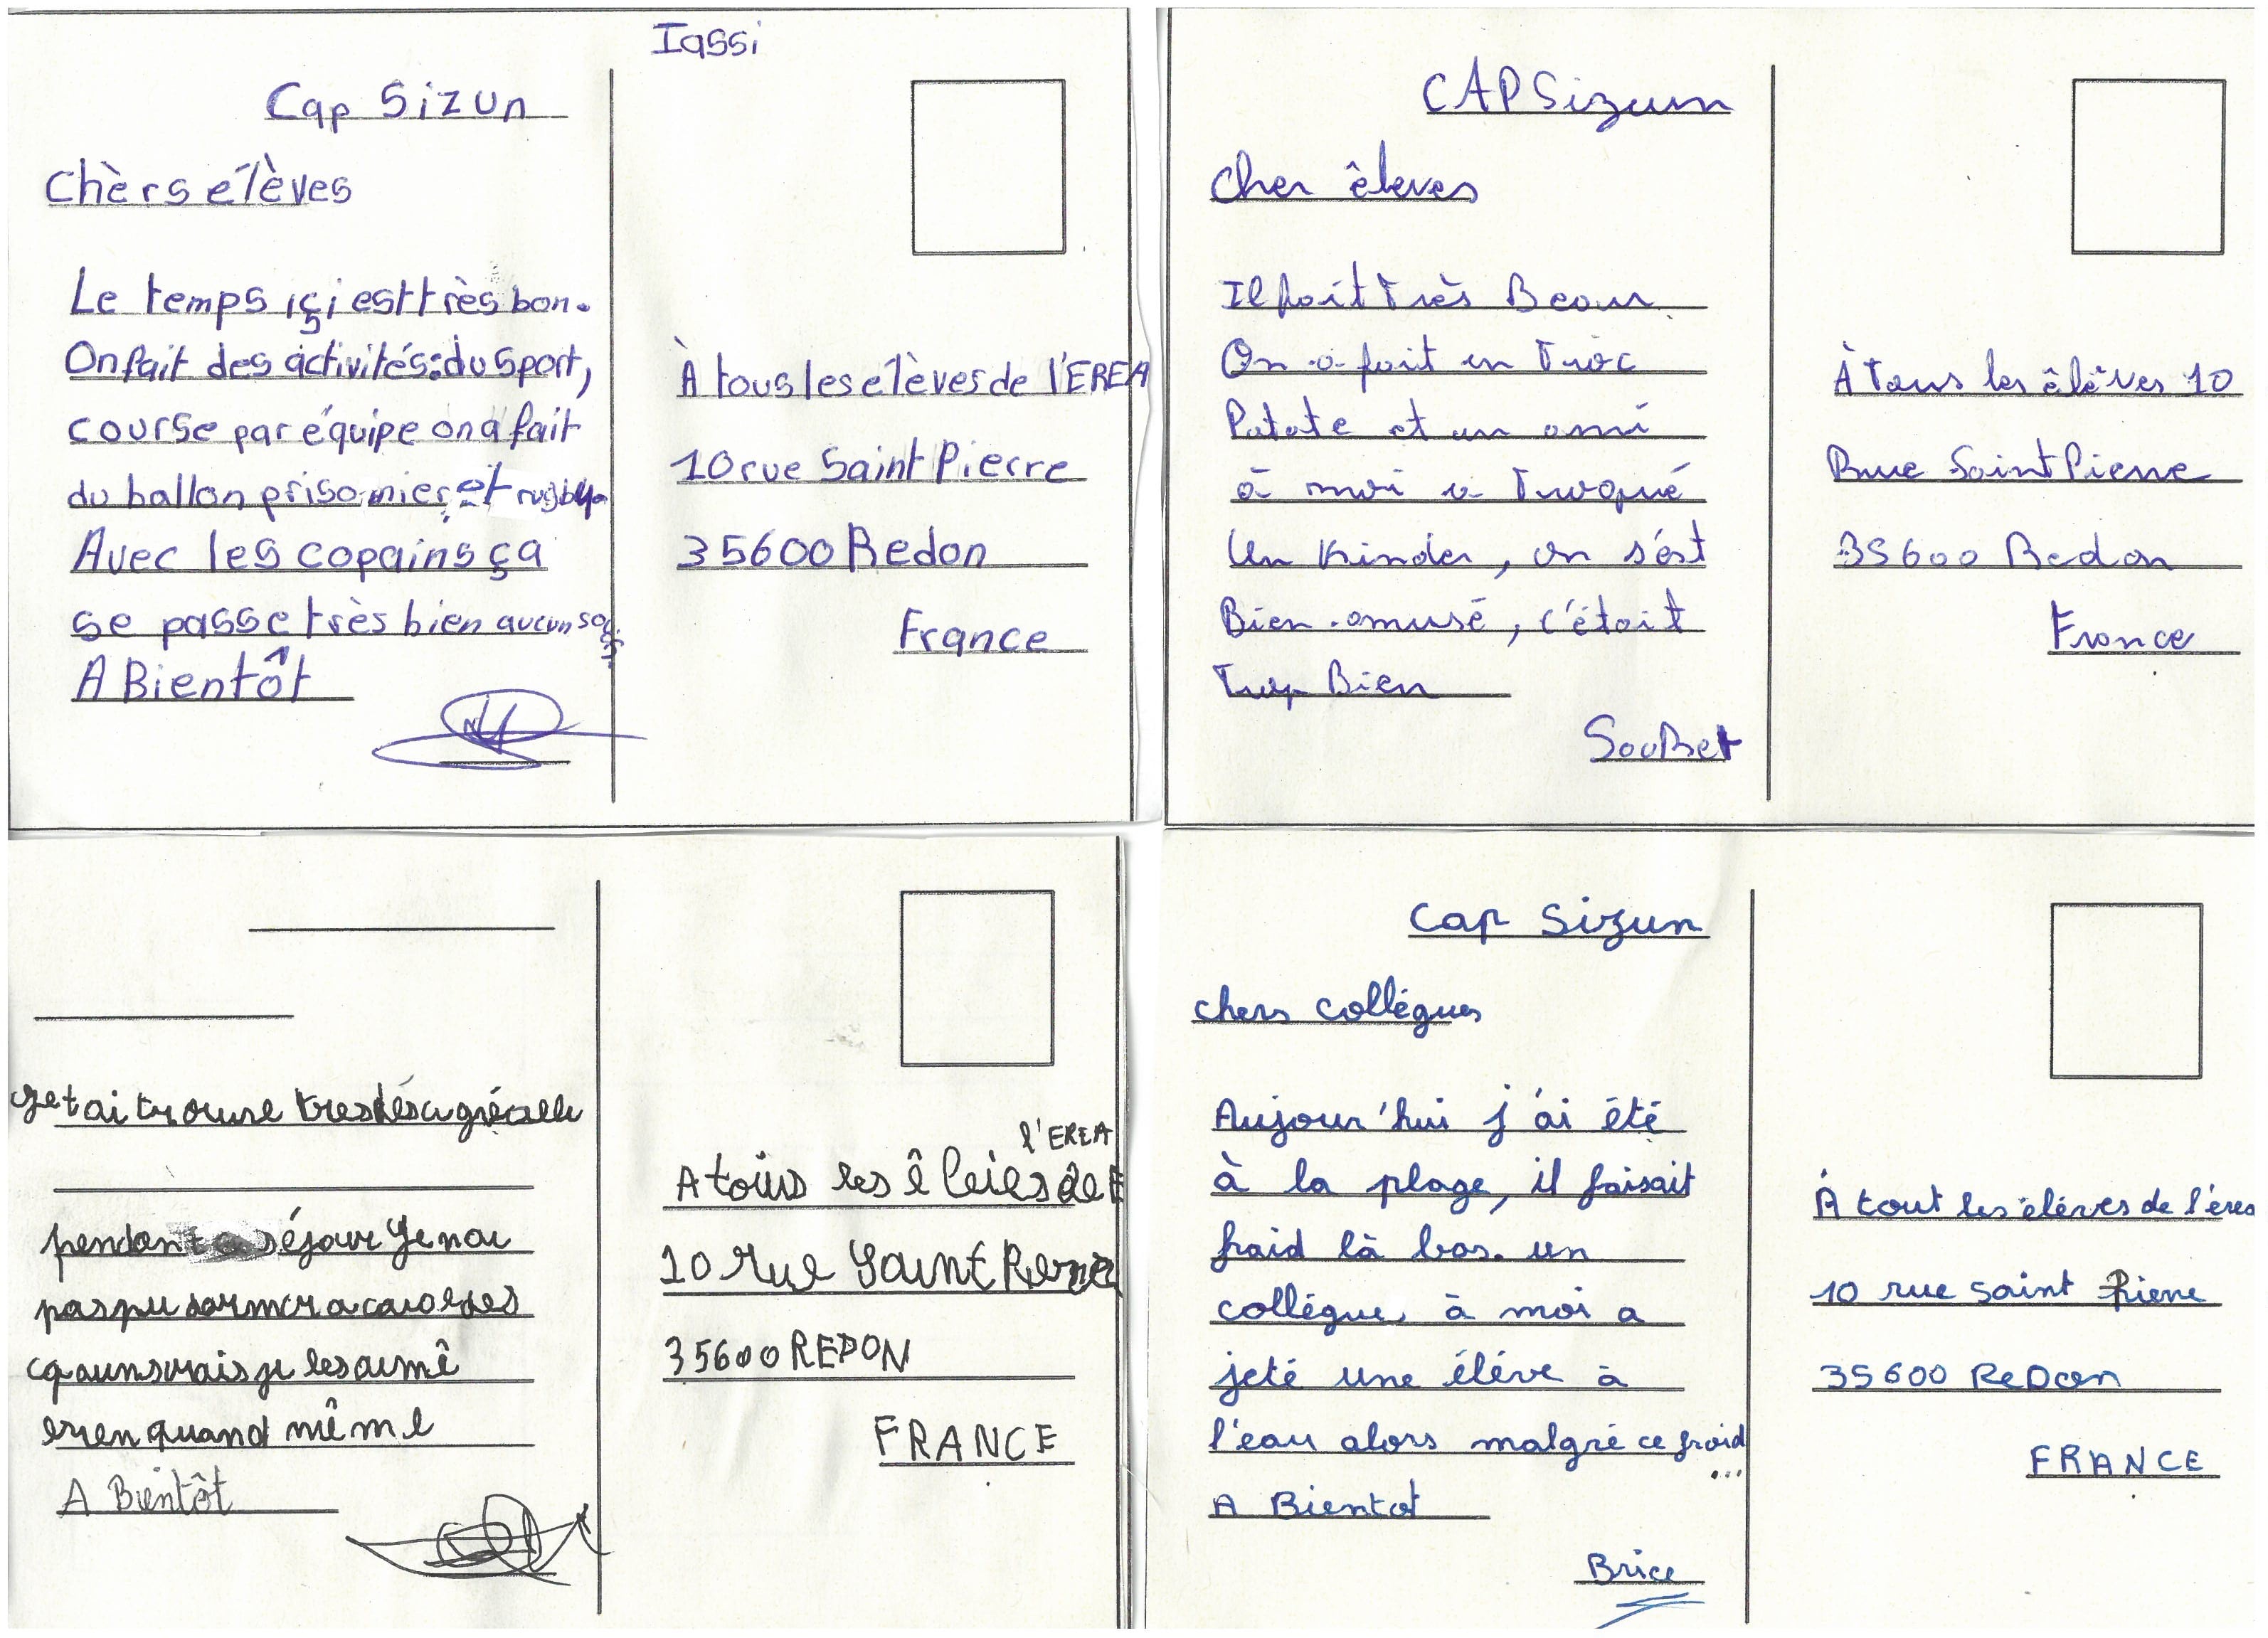 Iassi
Cap Sizun
Chèrs elèves
Le temps içi est très bon.
On fait des activités: du sport,
course par équipe on a fait
du ballon prisonnier, et rugby.
Avec les copains ça
se passe très bien aucun
A Bientôt
À tous les elèves de l'EREA
10 rue Saint Pierre
35600 Redon
France
CAP Sizun
Cher êleves
Il fait Très Beau
On a fait un Troc
Patate et un ami
à moi a Troqué
Un Kinder, on s'ést
Bien amusé, c'était
Trop Bien
SouBet
À Tous les êlêves 10
Rue Saint Pierre
35600 Redon
France
pendant séjour Je
quand même
A Bientôt
A tous les
l'EREA
10 rue Saint
35600 REDON
FRANCE
Cap Sizun
chers collégues
Aujour'hui j'ai été
à la plage, il faisait
froid là bas. un
collégue, à moi a
jeté une éléve à
l'eau alors malgré ce froid
...
A Bientot
Brice
À tout les éléves de l'érea
10 rue Saint Pierre
35600 ReDon
FRANCE